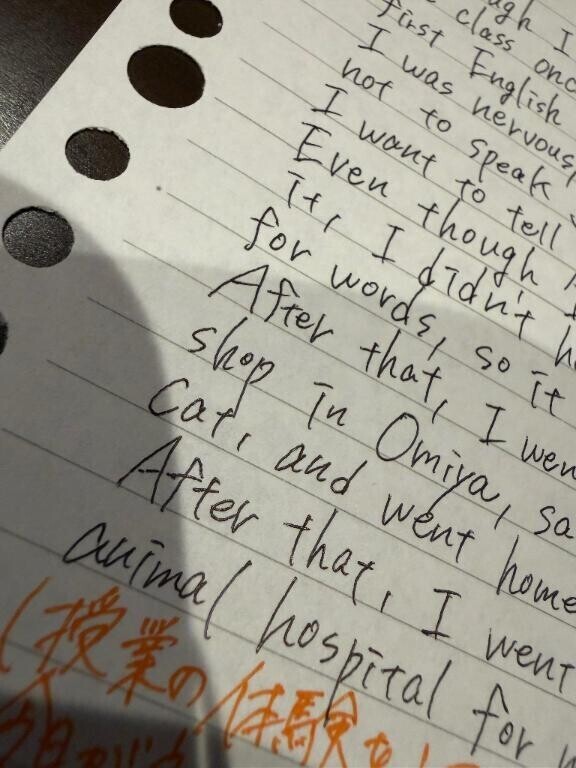 I
class
first English
I was nervous,
not to speak
I want to tell
Even though
it, I didn't
for words, so it
After that, I
shop in Omiya,
cat, and went home
After that, I went
animal hospital for
(授業の体験を